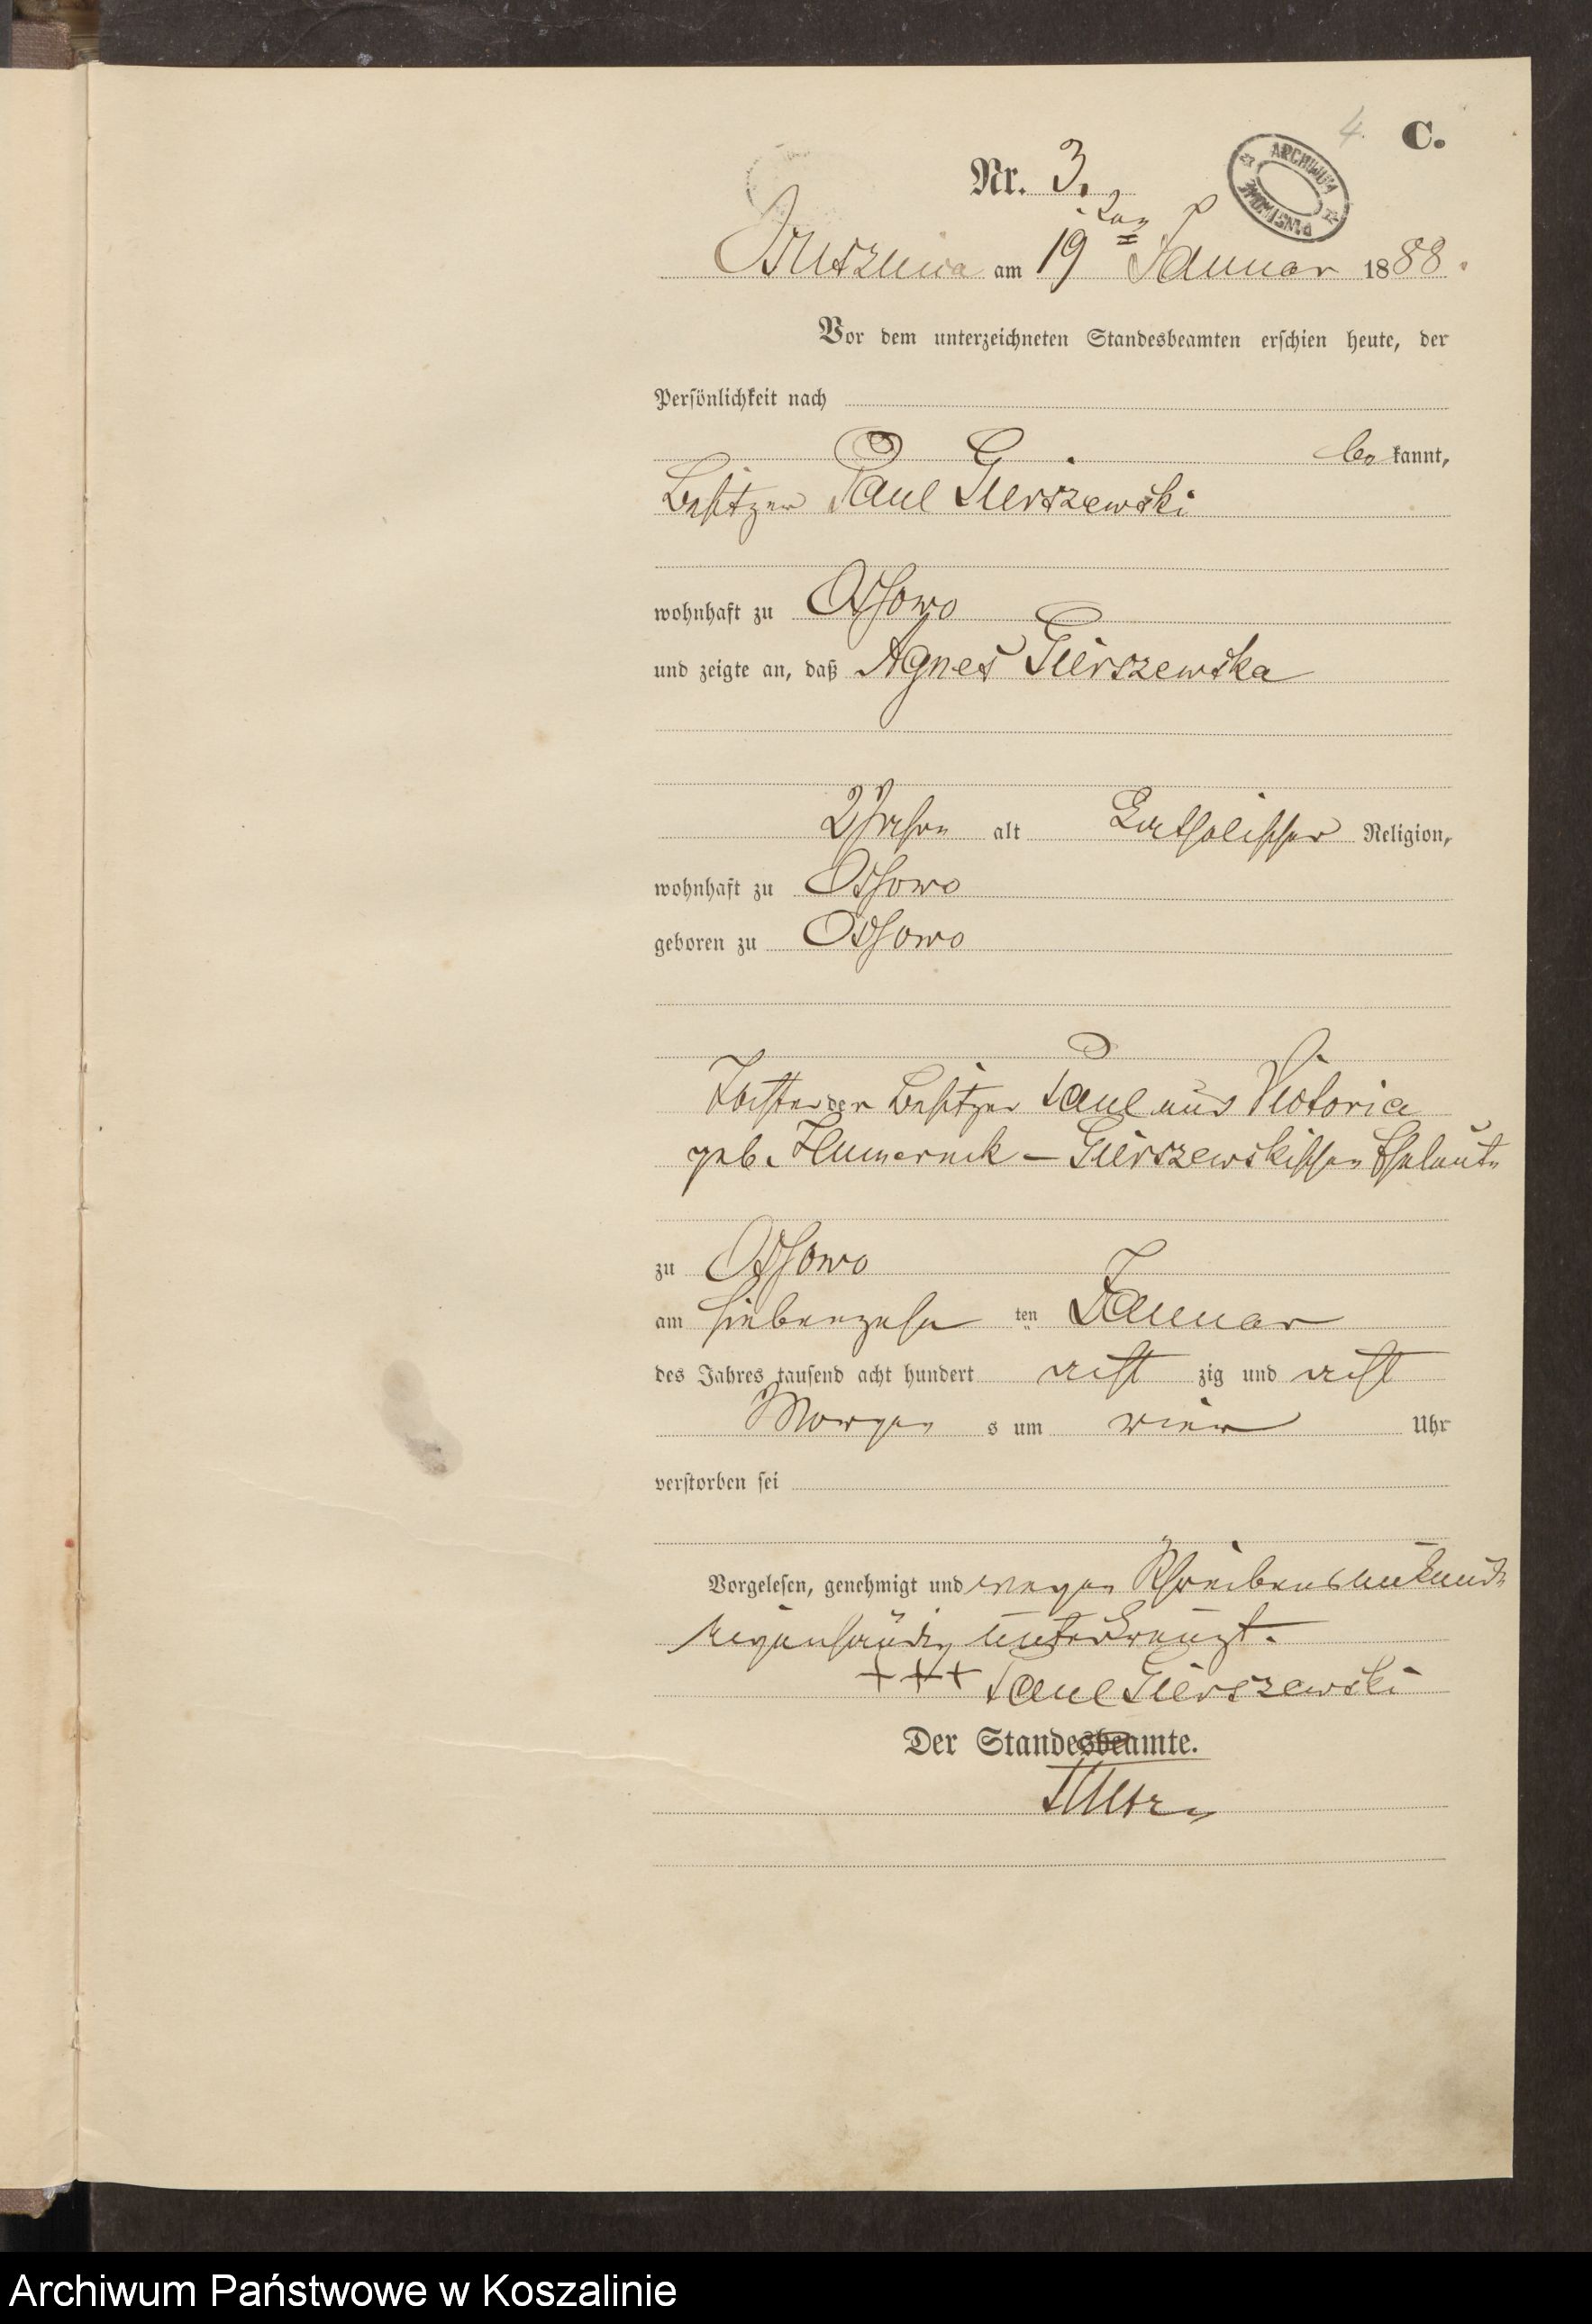 4. C.
ARCHIWUM PAŃSTWOWE
Nr. 3.
am 19ten Januar 1888.
Vor dem unterzeichneten Standesbeamten erschien heute, der
Persönlichkeit nach
be kannt,
Besitzer Paul Gierszewski
wohnhaft zu Ossowo
und zeigte an, daß Agnes Gierszewska
2 Jahre alt katholischer Religion,
wohnhaft zu Ossowo
geboren zu Ossowo
Tochter der Besitzer Paul und Victoria
geb. Gierszewskischen Eheleute
zu Ossowo
am siebenzehn ten Januar
des Jahres tausend acht hundert acht zig und acht
Morgen s um vier Uhr
verstorben sei
Vorgelesen, genehmigt und wegen Schreibensunkunde
eigenhändig unterkreuzt.
+++ Paul Gierszewski
Der Standesbeamte.
Archiwum Państwowe w Koszalinie